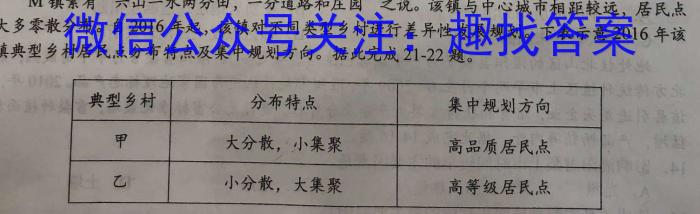 M镇素有"六山一水两分田，一分道路和庄园"之说。该镇与中心城市相距较远，居民点
大多零散分布。自2016年起，该镇对不同类型乡村进行差异性发展规划。下表示意2016年该
镇典型乡村居民点分布特点及集中规划方向。据此完成21-22题。
微信公众号关注：趣找答案
典型乡村 分布特点 集中规划方向
甲 大分散，小集聚 高品质居民点
乙 小分散，大集聚 高等级居民点